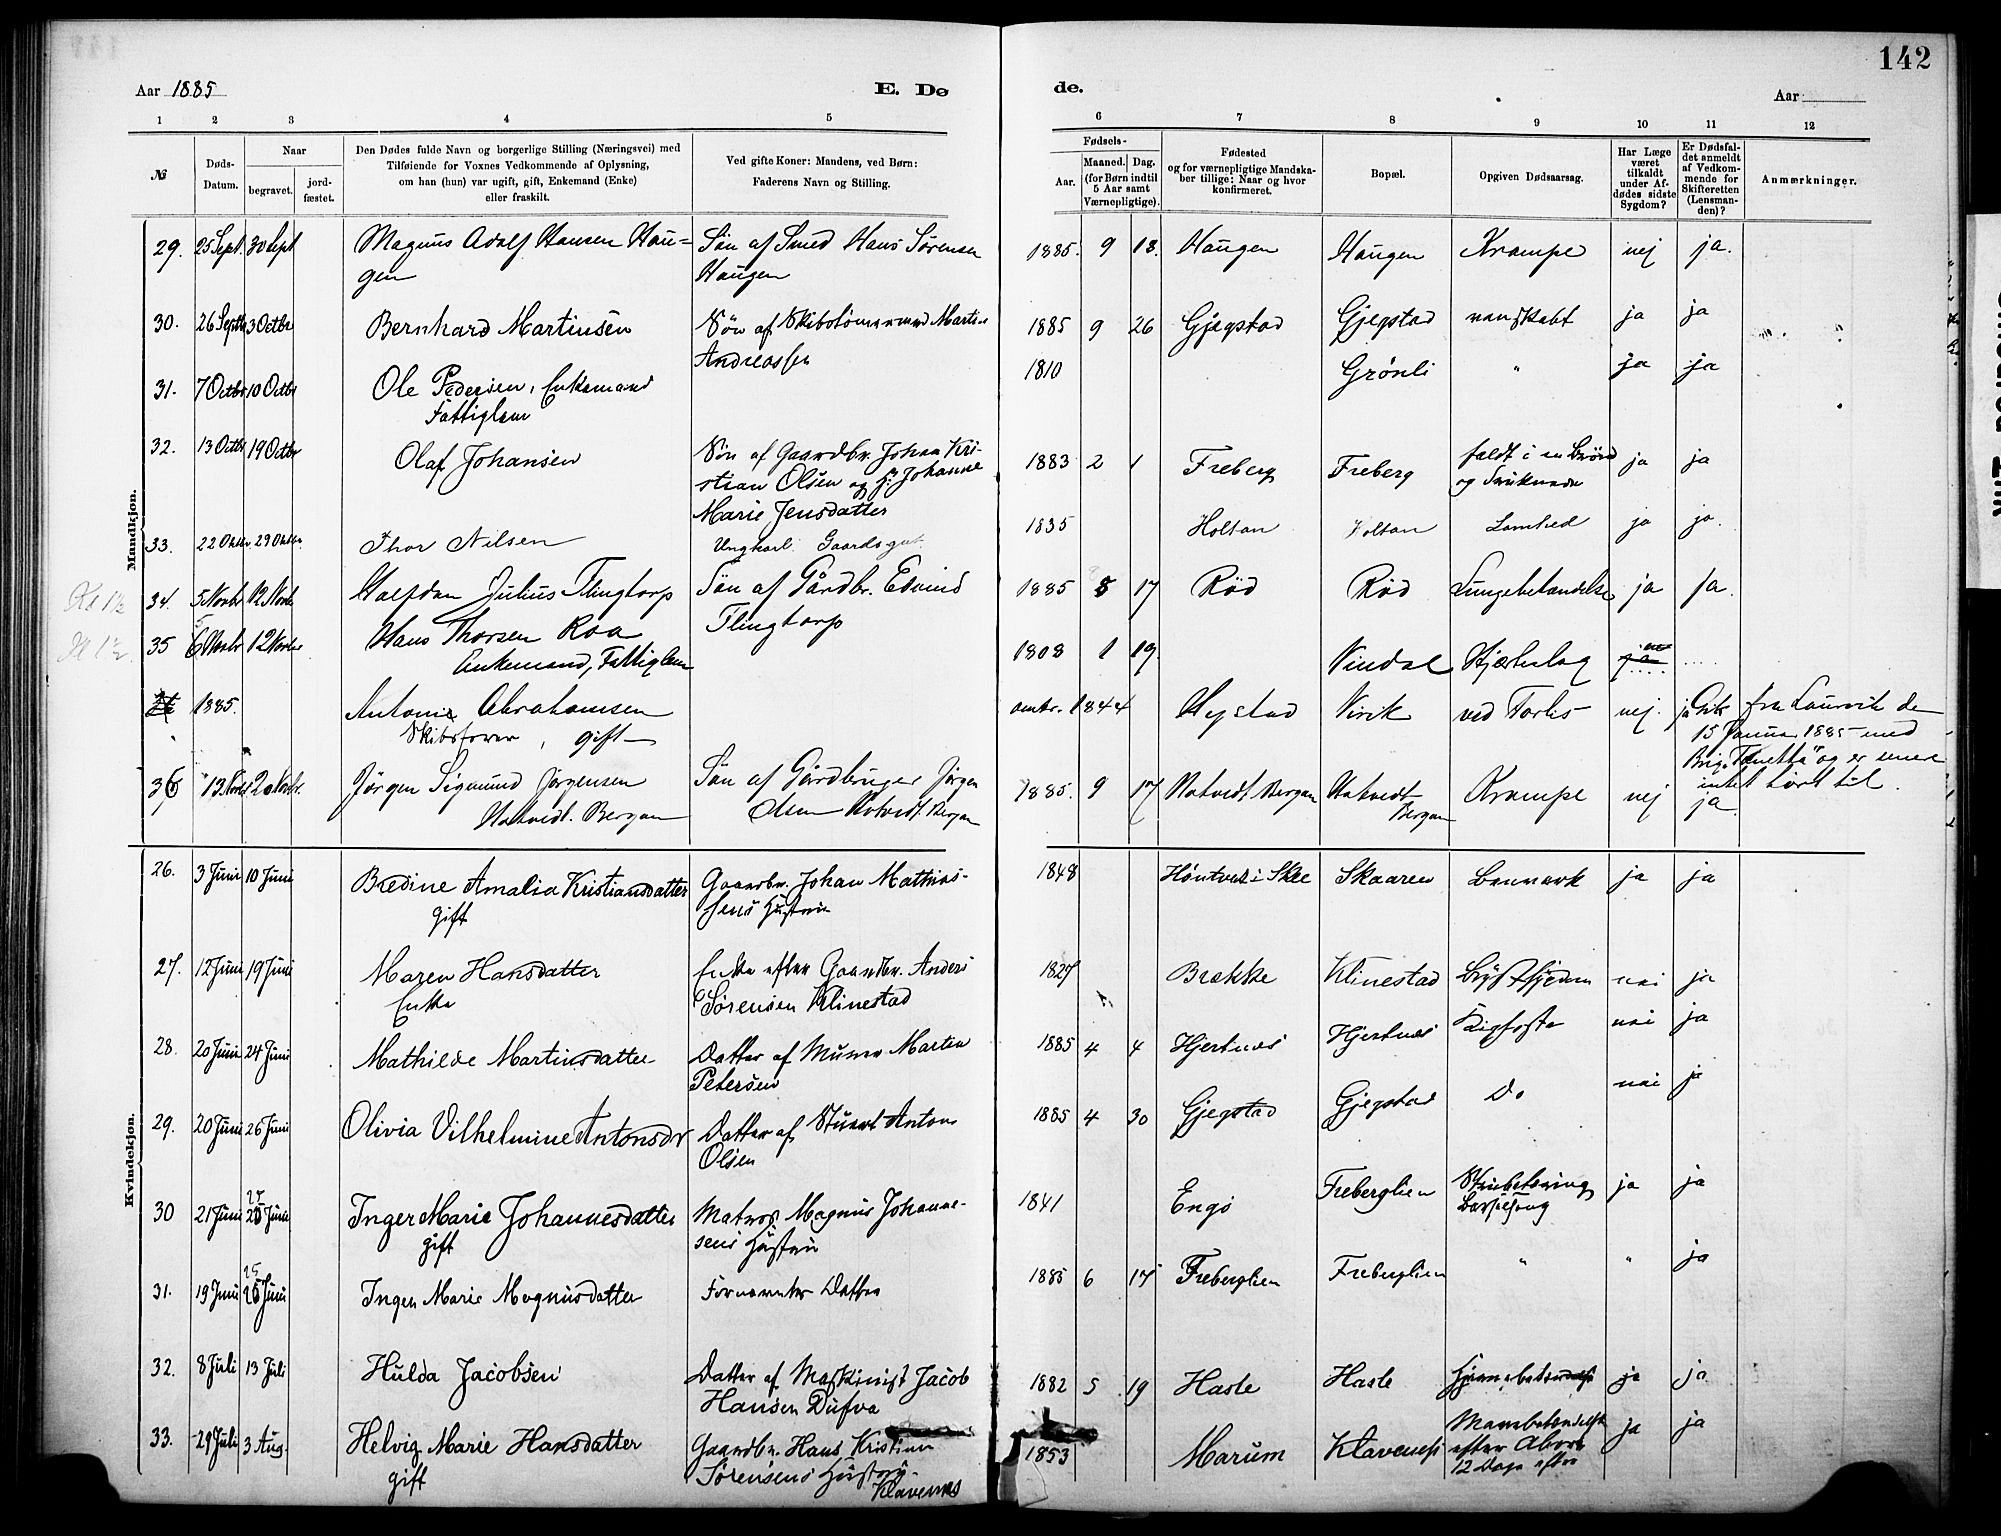 142
Aar 1885
E. Dø
de.
Aar
1 2 3 4 5
6 7 8 9 10 11 12
№
Døds-
Datum.
Naar
begravet.
jord-
fæstet.
Den Dødes fulde Navn og borgerlige Stilling (Næringsvei) med
Tilføiende for Voxnes Vedkommende af Oplysning,
om han (hun) var ugift, gift, Enkemand (Enke)
eller fraskilt.
Ved gifte Koner: Mandens, ved Børn:
Faderens Navn og Stilling.
Fødsels-
Aar.
Maaned. Dag.
(for Børn indtil
5 Aar samt
Værnepligtige).
Fødested
og for værnepligtige Mandska-
ber tillige: Naar og hvor
konfirmeret.
Bopæl.
Opgiven Dødsaarsag.
Har Læge
været
tilkaldt
under Af-
dødes sidste
Sygdom?
Er Dødsfal-
det anmeldt
af Vedkom-
mende for
Skifteretten
(Lensman-
den)?
Anmærkninger.
Mandkjøn.
29. 25 Sept. 30 Sept Magnus Adolf Hansen Hau= Søn af Smed Hans Sørensen 1885. 9 13. Haugen Haugen Krampe nej ja.
gen Haugen
30. 26 Septb 3 Octbr Bernhard Martinsen Søn af Skibstømmermand Martin 1885 9 26 Gjegstad Gjegstad vanskabt ja ja
Andreassen
31. 7 Octbr 10 Octbr Ole Pedersen, Enkemand 1810 Grønli " ja ja
Fattiglem
32. 13 Octbr 19 Octbr Olaf Johansen Søn af Gaardbr. Johan Kri- 1883 2 1 Freberg Freberg faldt i en Brønd ja ja
stian Olsen og H. Johanne og druknede
Marie Jensdatter
33. 22 Oktbr. 29 Oktbr. Thor Nilsen Ungkarl Gaardsgut. 1835 Holtan Holtan Lamhed ja ja.
Kr 1½ 34. 5 Novbr 12 Novbr Halfdan Julius Flingtorp Søn af Gårdbr. Edvind 1885 8 17 Rød Rød Lungebetændelse ja ja.
Flingtorp
35 6 Novbr 12 Novbr. Hans Thorsen Roa 1808 1 19. Vindal Hjerteslag
Enkemand, Fattiglem
1885. Antoni Abrahamsen omtr. 1844 Hystad Virik ved Forlis nej. ja Gik fra Laurvik den
Skibsfører, gift 15 Januar 1885 med
Brig. "Fanetta" og er senere
intet hørt til.
36 13 Novbr 20 Novbr. Jørgen Sigmund Jørgensen Søn af Gårdbruger Jørgen 1885. 9 17 Hotvedt Bergan Hotvedt Krampe nej ja
Hotvedt. Bergan Olsen Hotvedt. Bergan Bergan
Kvindekjøn.
26. 3 Juni 10 Juni Bredine Amalia Kristiansdatter Gaardbr. Johan Mathias- 1848 Høntvedt i Skee Skaaren ja ja
gift sens Hustru
27. 12 Juni 19 Juni Maren Hansdatter Enke efter Gaardbr. Anders 1827 Brekke Klinestad nei ja
Enke Sørensen Klinestad
28. 20 Juni 24 Juni Mathilde Martinsdatter Datter af Murer Martin 1885 4 4 Hjertnes Hjertnes Kighoste nei ja
Petersen
29. 20 Juni 26 Juni Olivia Vilhelmine Antonsdr Datter af Stuert Anton 1885 4 30 Gjegstad Gjegstad Do nei ja
Olsen
30 21 Juni 25 Juni Inger Marie Johannesdatter Matros Magnus Johanne- 1841 Engø Freberglien Strubetæring ja ja
gift sens Hustru Barselseng
31. 19 Juni 25 Juni Inger Marie Magnusdatter Fornævntes Datter 1885 6 17 Freberglien Freberglien " " ja
32. 8 Juli 13 Juli Hulda Jacobsen Datter af Maskinist Jacob 1882 5 19 Hasle Hasle Hjernebetændelse ja ja.
Hansen Dufva
33. 29 Juli 3 Aug. Helvig Marie Hansdatter Gaardbr. Hans Kristian 1853 Marum Klavenes ja ja
gift Sørensens Hustru. efter Abort
Klavenes 12 Dage efter